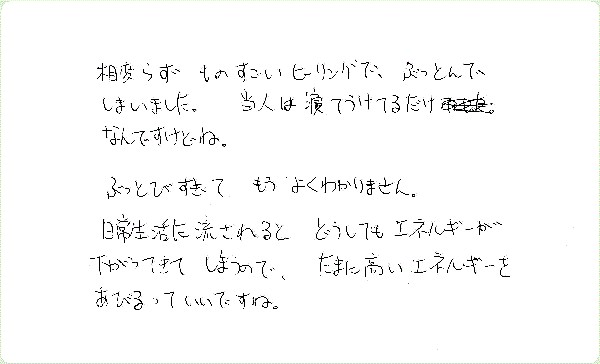 相変らず ものすごいヒーリングで、ぶっとんで
しまいました。 当人は寝てうけてるだけ
なんですけどね。
ぶっとびすぎて もう よくわかりません。
日常生活に流されると どうしてもエネルギーが
下がってきて しまうので、 たまに高いエネルギーを
あびるっていいですね。